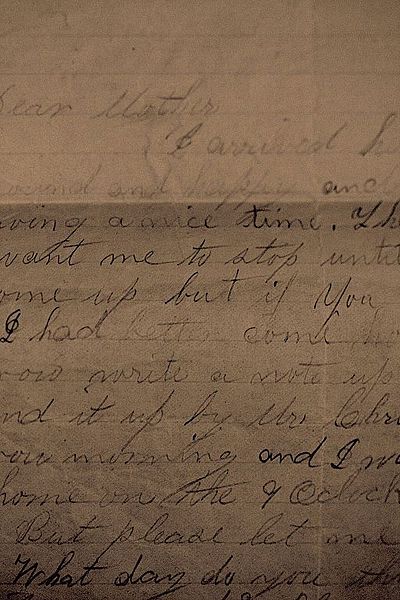 Dear Mother
I arrived h
ound and happy and
ving a nice time. The
want me to stop until
ome up but if you
I had better come ho
row write a note up
nd it up by Mr Chri
row morning and I w
home on the 9 Oclock
But please let me
What day do you th